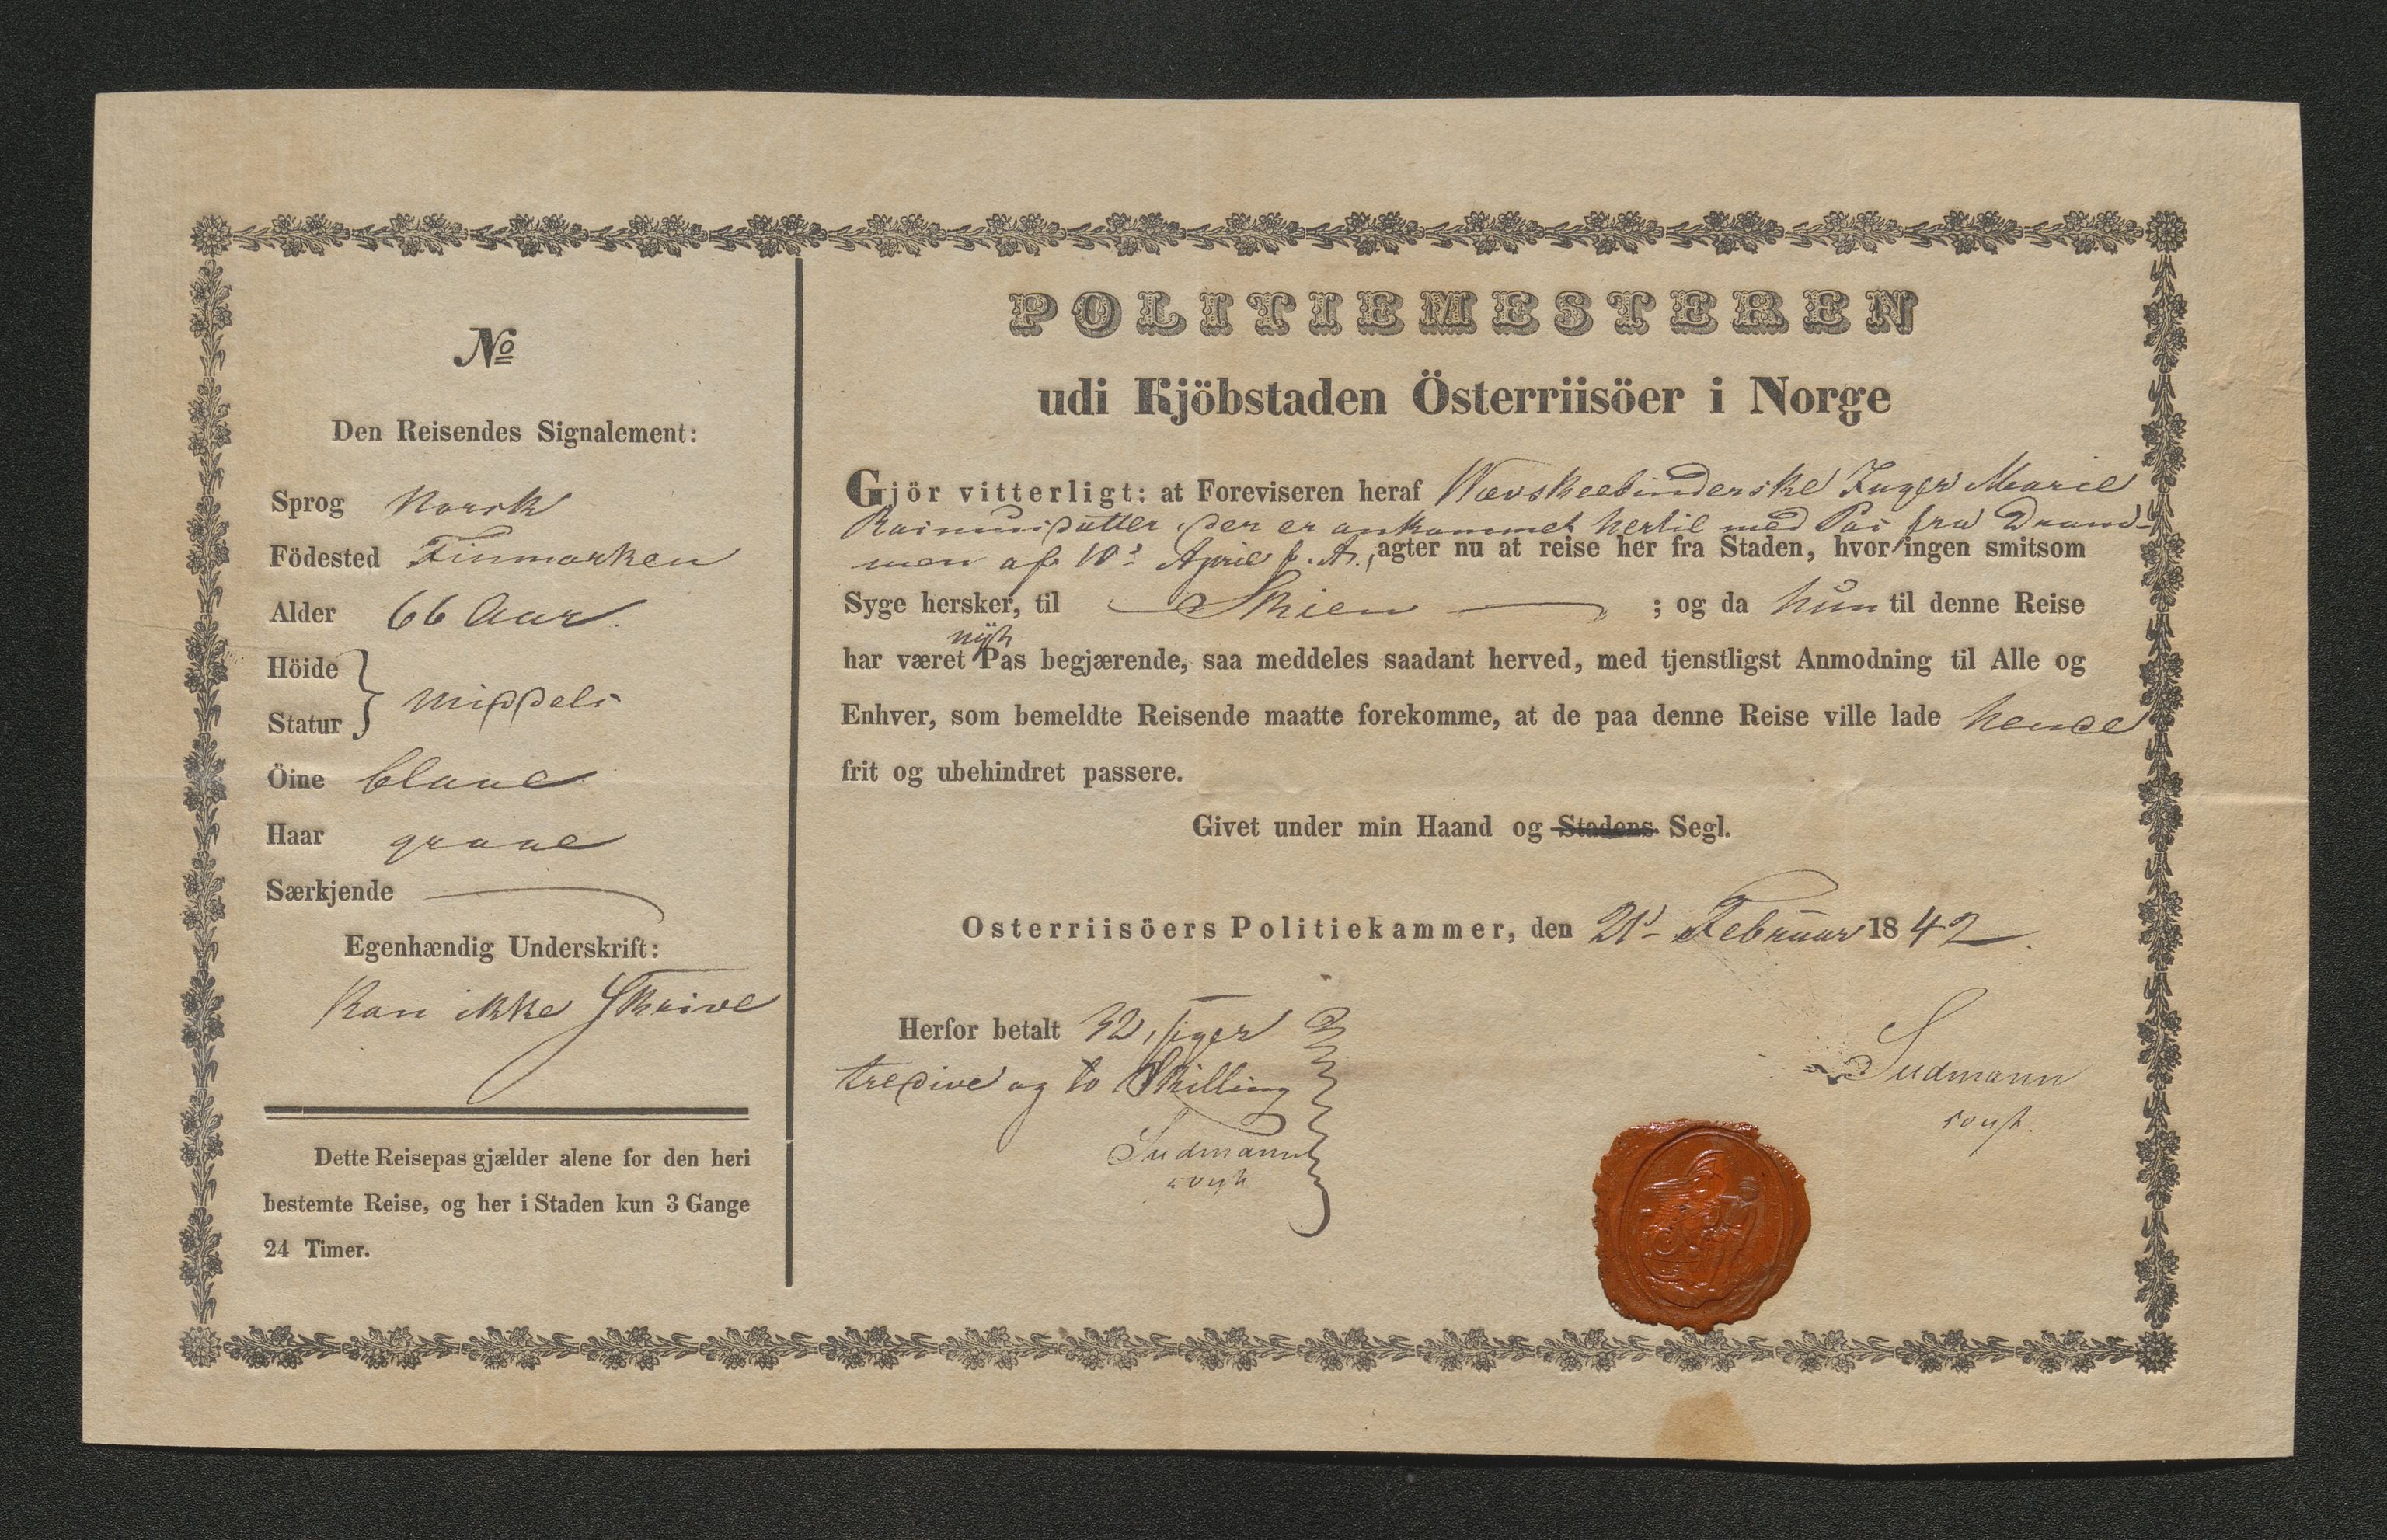 No
Den Reisendes Signalement:
Sprog Norsk
Födested Finmarken
Alder 66 Aar.
Höide
Statur } middels
Öine blaae
Haar graae
Særkjende
Egenhændig Underskrift:
Kan ikke Skrive
Dette Reisepas gjælder alene for den heri
bestemte Reise, og her i Staden kun 3 Gange
24 Timer.
POLITIEMESTEREN
udi Kjöbstaden Österriisöer i Norge
Gjör vitterligt: at Foreviseren heraf Inger Marie
Rasmusdatter, der er ankommet hertil med Pas fra Dram-
men af 10d April f. A., agter nu at reise her fra Staden, hvor ingen smitsom
Syge hersker, til Skien ; og da hun til denne Reise
har været nyt Pas begjærende, saa meddeles saadant herved, med tjenstligst Anmodning til Alle og
Enhver, som bemeldte Reisende maatte forekomme, at de paa denne Reise ville lade hende
frit og ubehindret passere.
Givet under min Haand og Stadens Segl.
Osterriisöers Politiekammer, den 21d Februar 1842.
Herfor betalt 32, siger
tredive og to Skilling
Sudmann
const
Sudmann
const.